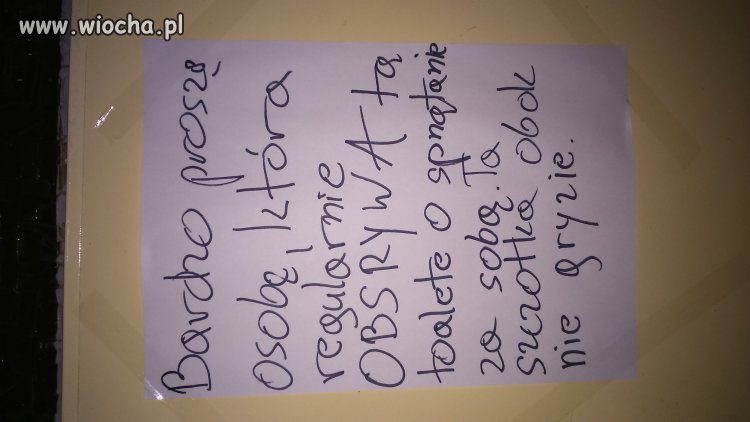 www.wiocha.pl
Bardzo proszę
osobę, która
regularnie
OBSRYWA tą
toaletę o spnątanie
za sobą. Ta
szczotka obok
nie gryzie.